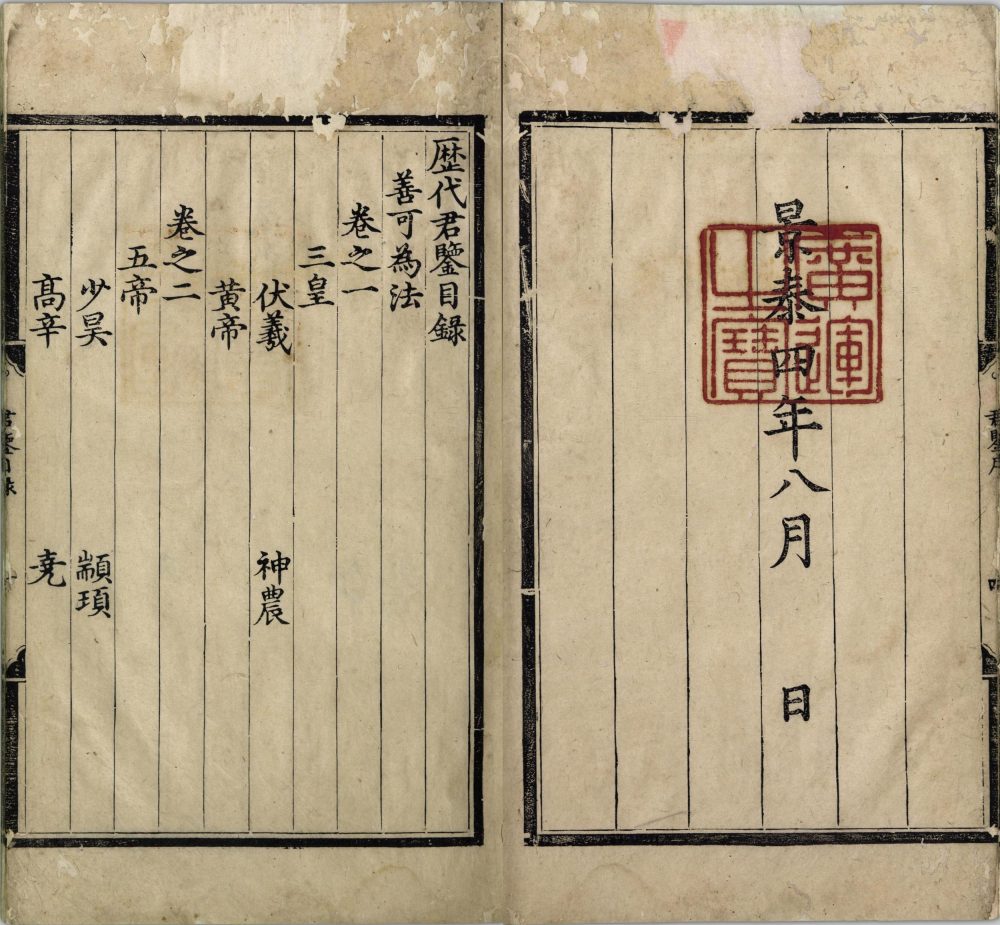 景泰四年八月 日
廣運之寶
歴代君鑒目錄
善可為法
卷之一
三皇
伏羲 神農
黃帝
卷之二
五帝
少昊 顓頊
髙辛 堯
君鑒目錄